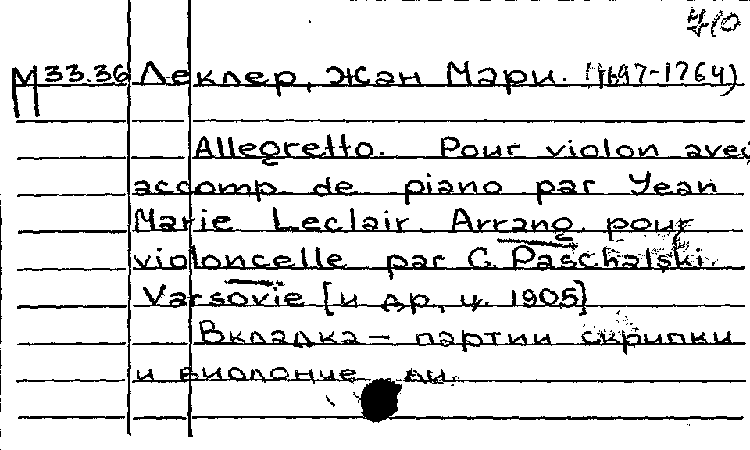 710
М 33.36 Леклер, Жан Мари. (1697-1764)
Allegretto. Pour violon avec
accomp. de piano par Yean
Marie Leclair. Arrang. pour
violoncelle par C. Paschalski.
Varsovie [и др, ц. 1905]
Вкладка — партии скрипки
и